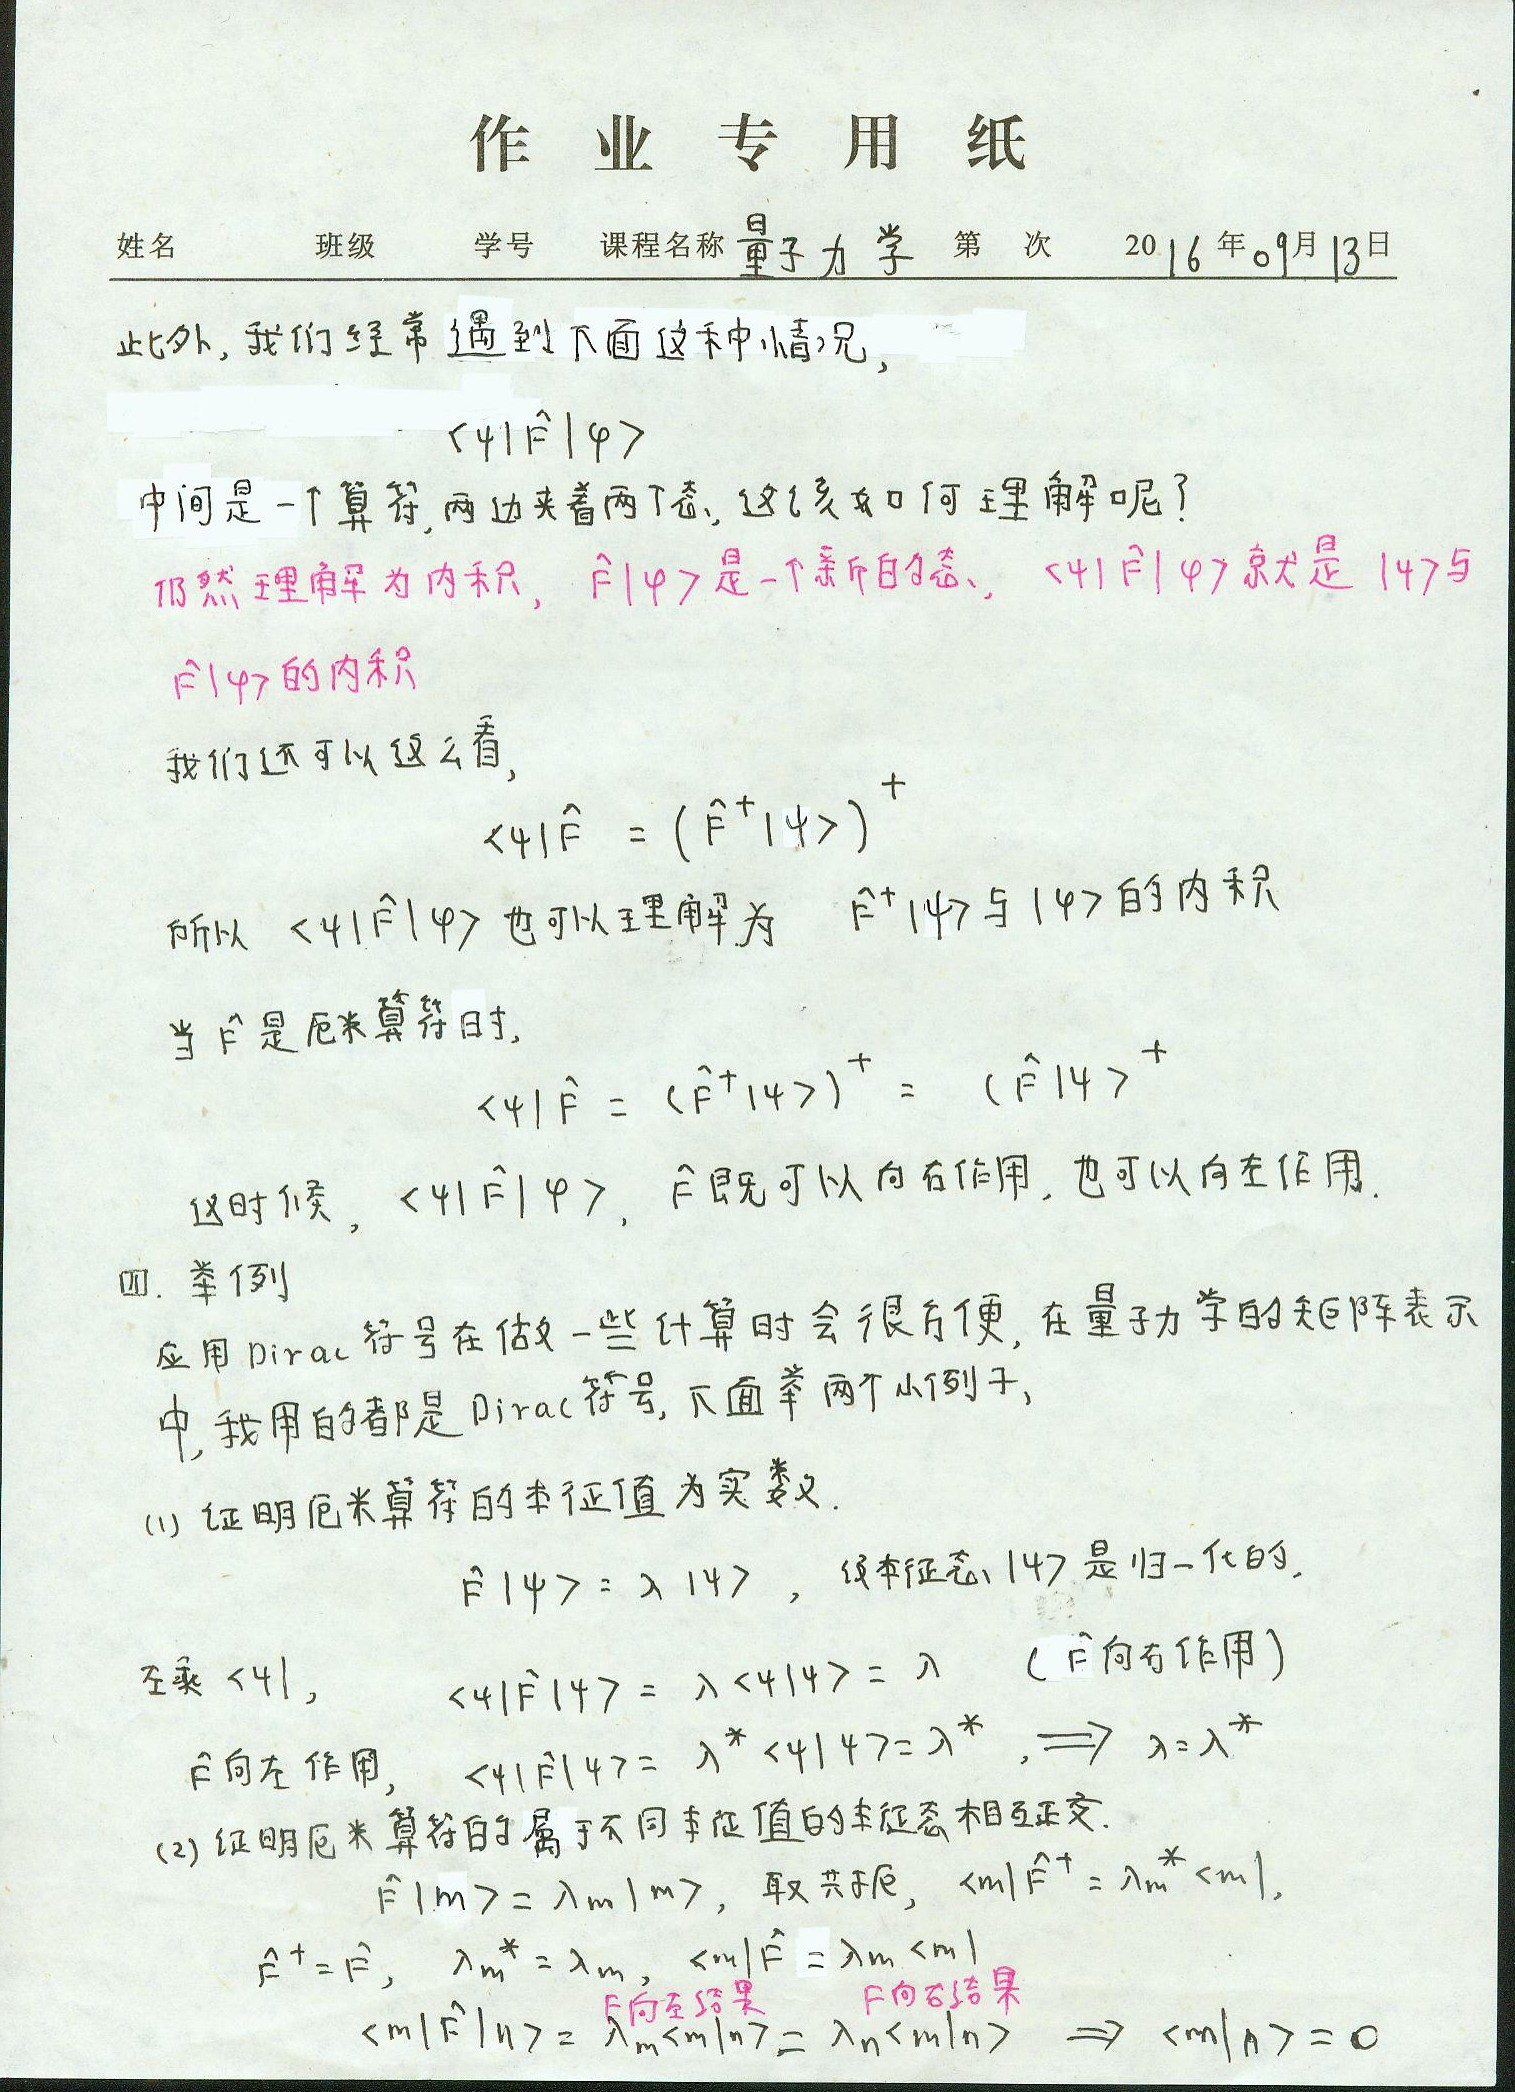 作业专用纸
姓名 班级 学号 课程名称 量子力学 第 次 2016年09月13日
此外,我们经常遇到下面这种情况,
<ψ|F̂|φ>
中间是一个算符,两边夹着两个态,这该如何理解呢?
仍然理解为内积, F̂|φ>是一个新的态, <ψ|F̂|φ>就是|ψ>与
F̂|φ>的内积
我们还可以这么看,
<ψ|F̂ = (F̂⁺|ψ>)⁺
所以 <ψ|F̂|φ> 也可以理解为 F̂⁺|ψ>与|φ>的内积
当F̂是厄米算符时,
<ψ|F̂ = (F̂⁺|ψ>)⁺ = (F̂|ψ>⁺
这时候, <ψ|F̂|φ>, F̂既可以向右作用,也可以向左作用.
四. 举例
应用Dirac符号在做一些计算时会很方便,在量子力学的矩阵表示
中,我用的都是Dirac符号,下面举两个小例子,
(1) 证明厄米算符的本征值为实数.
F̂|ψ> = λ|ψ> , 设本征态|ψ>是归一化的.
左乘<ψ|, <ψ|F̂|ψ> = λ<ψ|ψ> = λ (F̂向右作用)
F̂向左作用, <ψ|F̂|ψ> = λ*<ψ|ψ> = λ* , ⟹ λ=λ*
(2) 证明厄米算符的属于不同本征值的本征态相互正交.
F̂|m> = λm|m>, 取共轭, <m|F̂⁺ = λm*<m|,
F̂⁺=F̂, λm*=λm, <m|F̂ = λm<m|
F向左结果 F向右结果
<m|F̂|n> = λm<m|n> = λn<m|n> ⟹ <m|n> = 0